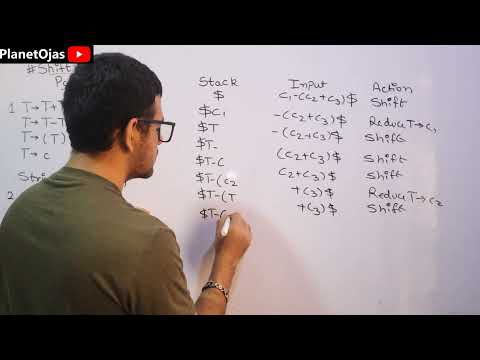 PlanetOjas
#Shift
Pa
1 T→T+
T→T-
T→(T)
T→c
Stri
2
Stack Input Action
$ c₁-(c₂+c₃)$ Shift
$c₁ -(c₂+c₃)$ Reduce T→c₁
$T -(c₂+c₃)$ Shift
$T- (c₂+c₃)$ Shift
$T-( c₂+c₃)$ Shift
$T-(c₂ +c₃)$ Reduce T→c₂
$T-(T +c₃)$ Shift
$T-(